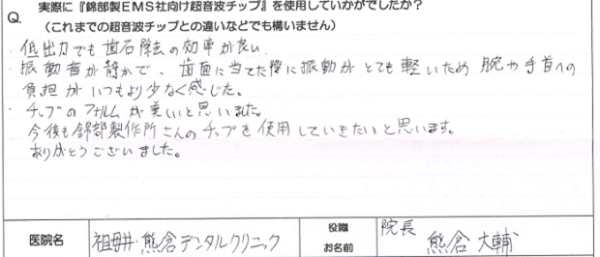 Q. 実際に『錦部製EMS社向け超音波チップ』を使用していかがでしたか？
（これまでの超音波チップとの違いなどでも構いません）
・低出力でも歯石除去の効率が良い。
・振動音が静かで、歯面に当てた際に振動がとても軽いため腕や手首への
負担がいつもより少なく感じた。
・チップのフォルムが美しいと思いました。
今後も錦部製作所さんのチップを使用していきたいと思います。
ありがとうございました。
医院名 祖母井・熊倉デンタルクリニック 役職 お名前 院長 熊倉 大輔